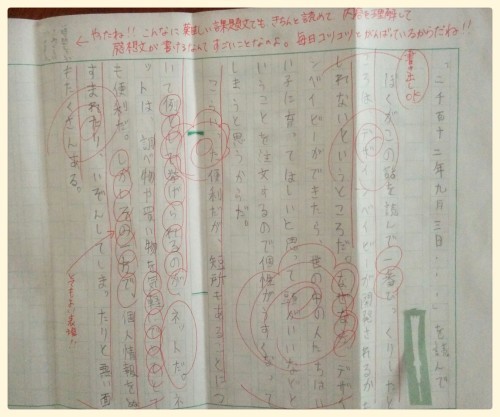 ← やったね!! こんなに難しい課題文でも、きちんと読めて、内容を理解して
感想文が書けるなんてすごいことなのよ。毎日コツコツとがんばっているからだね!!
書き出しOK
「二千五十二年九月三日・・・」を読んで
ぼくがこの話を読んで一番びっくりしたと
ベイビーが開発されるかも
しれないというところだ。なぜなら、デザイ
ンベイビーができたら、世の中の人たちはい
い子に育ってほしいと思って、頭がいいなどと
いうことを注文するので個性がうすくなって
しまうと思うからだ。
こういった便利だが、短所もあることにつ
いて例として挙げられるのが、ネットだ。ネ
ットは、調べ物や買い物を
も便利だ。しかしその一方で、個人情報をぬ
すまれたり、いぞんしてしまったりと悪い面
もたくさんある。
とてもよい表現!!